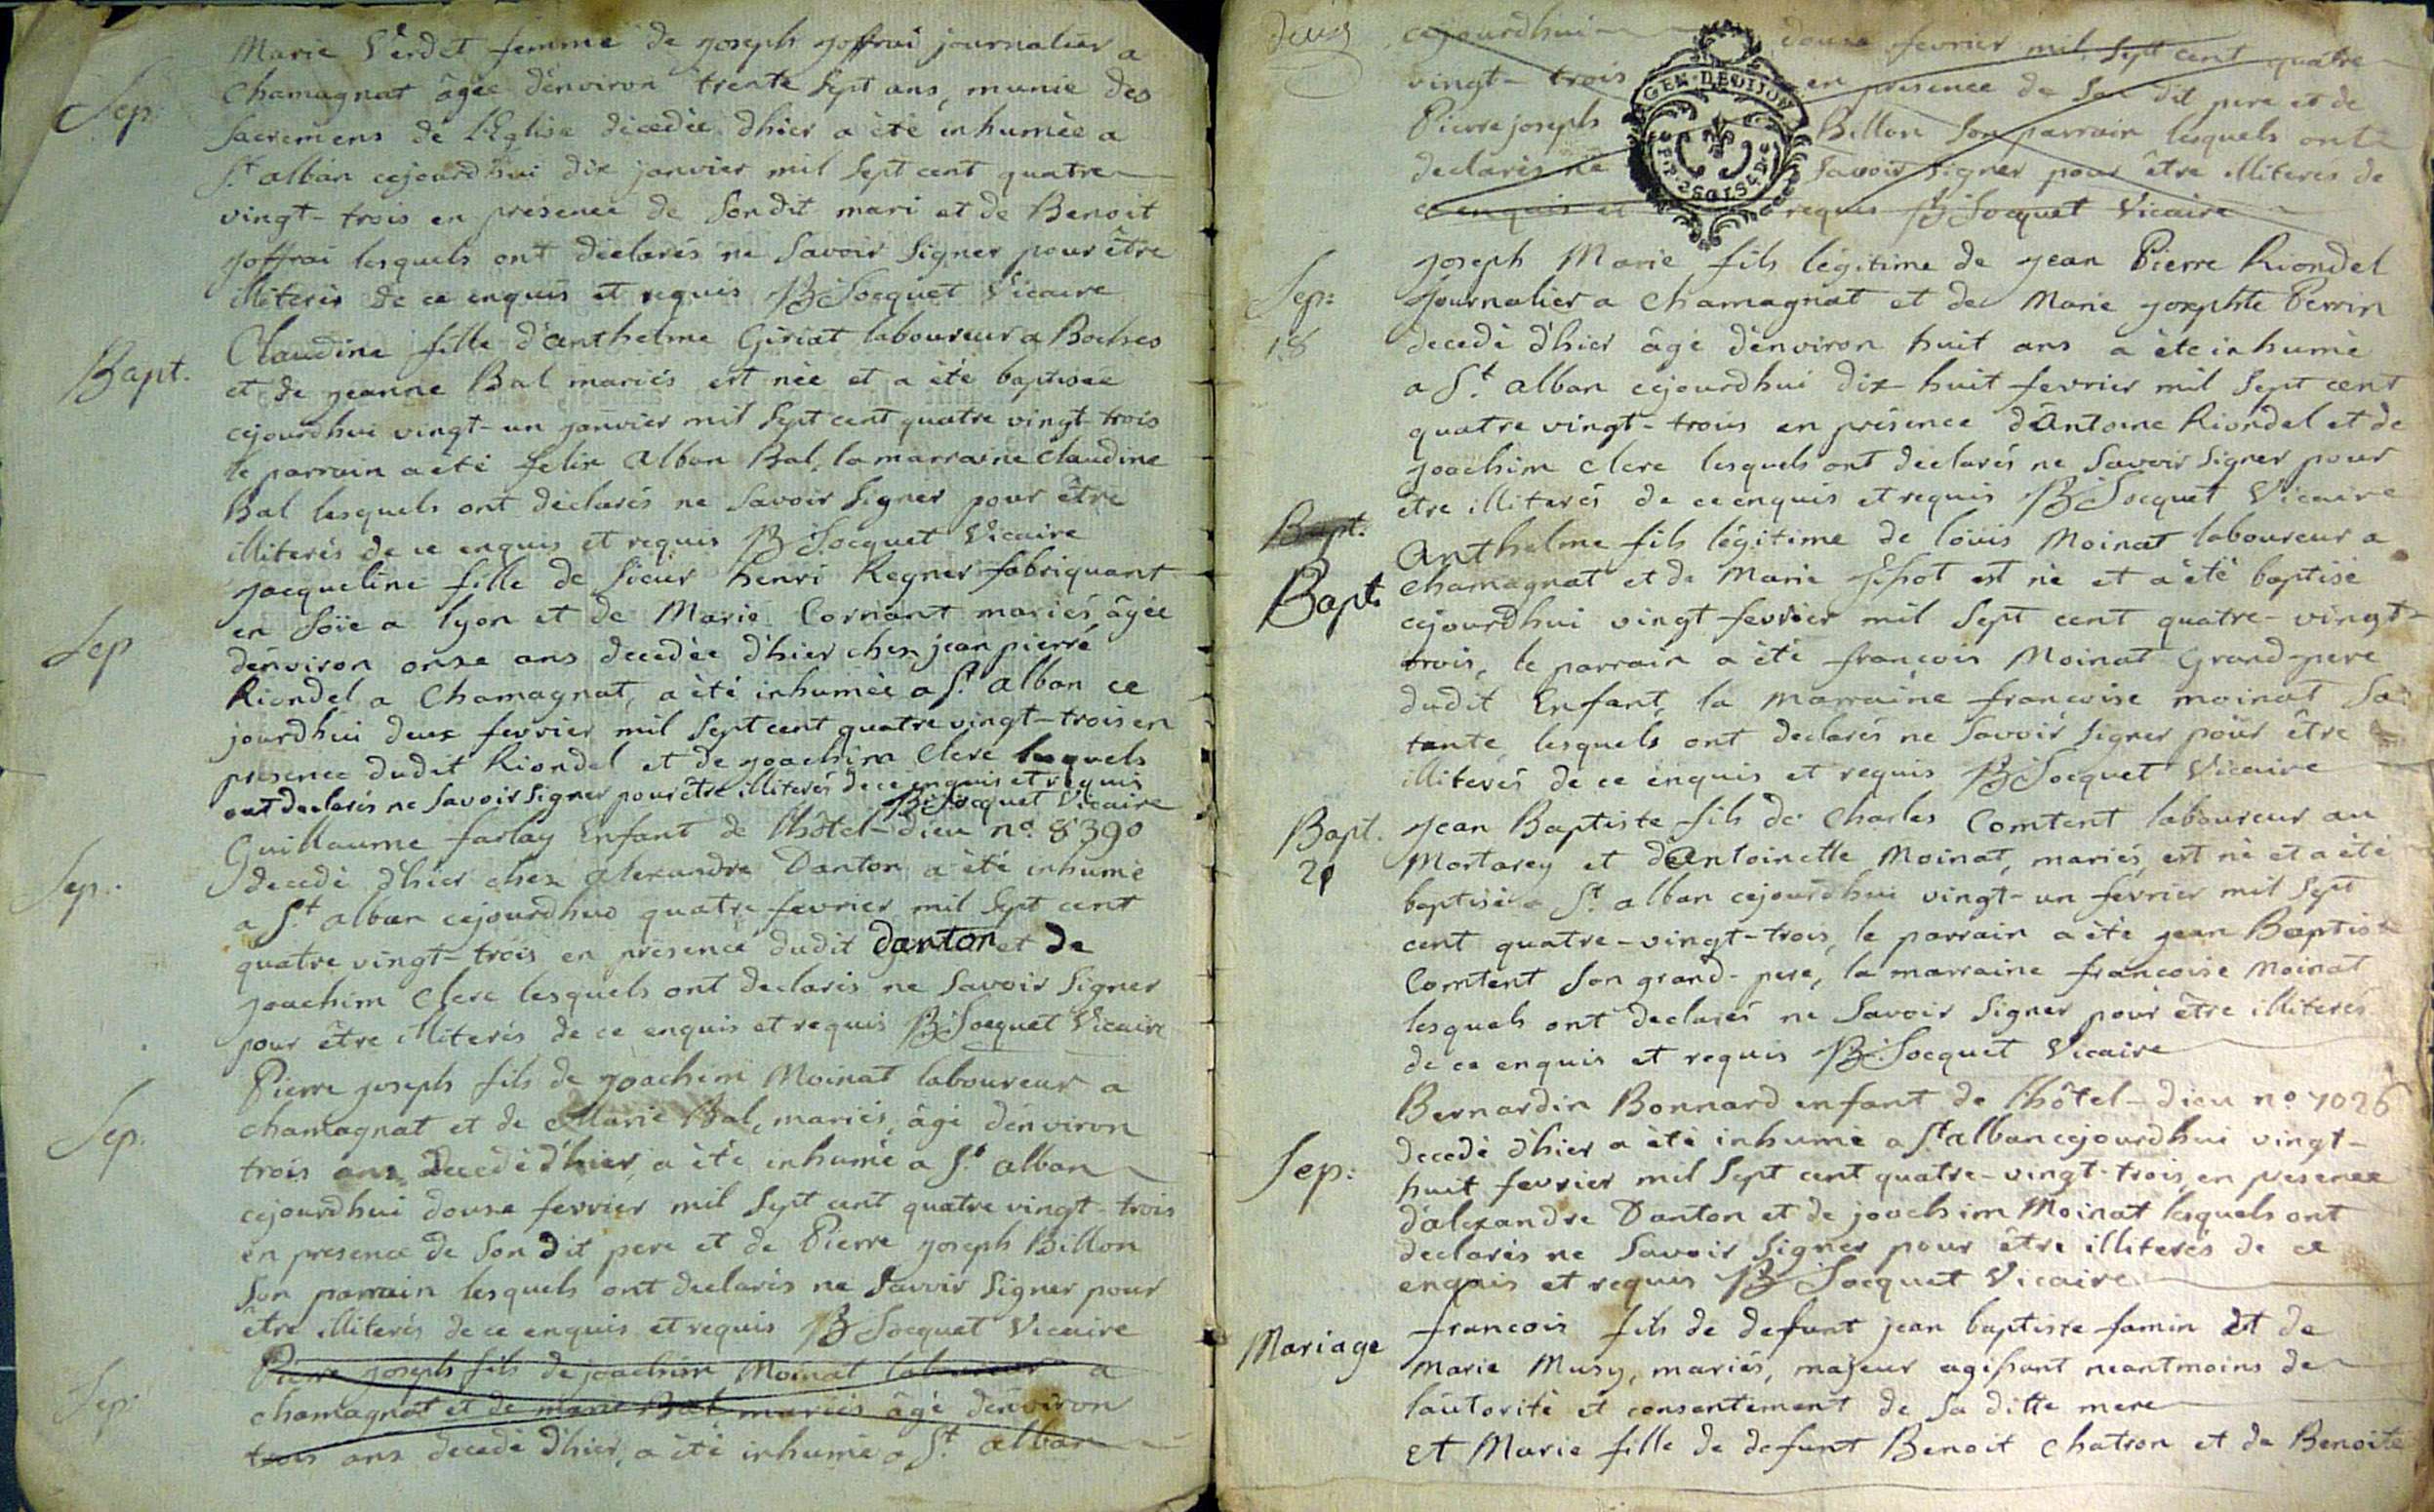 Marie Verdet femme de joseph joffrai journalier a
Sep: chamagnat âgée dénviron trente Sept ans, munie des
Sacremens de L'Eglise décédée dhier a été inhumée a
St alban cejourdhui dix janvier mil Sept cent quatre
vingt-trois en présence de Sondit mari et de Benoit
joffrai lesquels ont déclarés ne Savoir Signer pour être
illiterés de ce enquis et requis B Socquet Vicaire
Bapt. Claudine fille d'anthelme Giriat laboureur a Boches
et de jeanne Bal mariés est née et a été baptisée
cejourdhui vingt-un janvier mil Sept cent quatre vingt-trois
le parrain a eté felix alban Bal, la marraine Claudine
Bal lesquels ont déclarés ne Savoir Signer pour être
illiterés de ce enquis et requis B Socquet Vicaire
jacqueline fille de Sieur henri Regner fabriquant
en Soïe a lyon et de Marie Cornant mariés, âgée
Sep dénviron onze ans decedée d'hier chez jean pierre
Riondel a Chamagnat, a été inhumée a St. alban ce
jourdhui deux fevrier mil Sept cent quatre vingt-trois en
presence dudit Riondel et de joachim Clerc lesquels
ont declarés ne Savoir Signer pour être illiterés de ce enquis et requis
B Socquet Vicaire
Guillaume farlay Enfant de l'hôtel-dieu no. 8390
Sep.: decedé d'hier chez alexandre Danton a été inhumé
a St alban cejourdhui quatre fevrier mil Sept cent
quatre vingt-trois en présence dudit danton et de
joachim Clerc lesquels ont declarés ne Savoir Signer
pour être illiterés de ce enquis et requis B Socquet Vicaire
Pierre joseph fils de joachim Moinat laboureur a
Sep: chamagnat et de Marie Bal, mariés, âgé dénviron
trois ans decedé d'hier, a été inhumé a St. alban
cejourdhui douze fevrier mil Sept cent quatre vingt-trois
en presence de Son dit pere et de Pierre joseph Billon
Son parrain lesquels ont declarés ne Savoir Signer pour
être illiterés de ce enquis et requis B Socquet Vicaire
Pierre joseph fils de joachim Moinat laboureur a
Sep: chamagnat et de marie Bal mariés âgé dénviron
trois ans decedé d'hier, a été inhumé a St. alban
deux cejourdhui douze fevrier mil Sept cent quatre
vingt-trois en presence de Son dit pere et de
Pierre joseph Billon Son parrain lesquels ont
declarés ne Savoir Signer pour être illiteres de
ce enquis et requis B Socquet Vicaire
GEN. DE DIJON
joseph Marie fils légitime de jean Pierre Riondel
Sep: journalier a chamagnat et de Marie josephte Perrin
18 decedé d'hier âgé dénviron huit ans a été inhumé
a St. alban cejourdhui dix-huit fevrier mil Sept cent
quatre vingt-trois en présence d'Antoine Riondel et de
joachim clerc lesquels ont declarés ne Savoir Signer pour
être illiterés de ce enquis et requis B Socquet Vicaire
Bapt. Anthelme fils légitime de loüis Moinat laboureur a
Bapt. chamagnat et de Marie est né et a été baptisé
cejourdhui vingt fevrier mil Sept cent quatre-vingt-
trois, le parrain a été francois Moinat Grand-pere
dudit Enfant, la marraine francoise moinat Sa
tante, lesquels ont declarés ne Savoir Signer pour être
illiterés de ce enquis et requis B Socquet Vicaire
Bapt. jean Baptiste fils de Charles Comtent laboureur au
21 Mortarey et d'Antoinette Moinat, mariés, est né et a été
baptisé a St. alban cejourdhui vingt-un fevrier mil Sept
cent quatre-vingt-trois, le parrain a été jean Baptiste
Comtent Son grand-pere, la marraine francoise Moinat
lesquels ont declarés ne Savoir Signer pour être illiterés
de ce enquis et requis B Socquet Vicaire
Bernardin Bonnard enfant de l'hôtel-dieu no 7026
Sep: decedé d'hier a été inhumé a St alban cejourdhui vingt-
huit fevrier mil Sept cent quatre-vingt-trois en presence
d'alexandre Danton et de joachim Moinat lesquels ont
declarés ne Savoir Signer pour être illiterés de ce
enquis et requis B Socquet Vicaire
Mariage francois fils de defunt jean baptiste famin et de
Marie Musy, mariés, majeur agissant neantmoins de
l'autorité et consentement de Sa ditte mere
et Marie fille de defunt Benoit Chatron et de Benoite